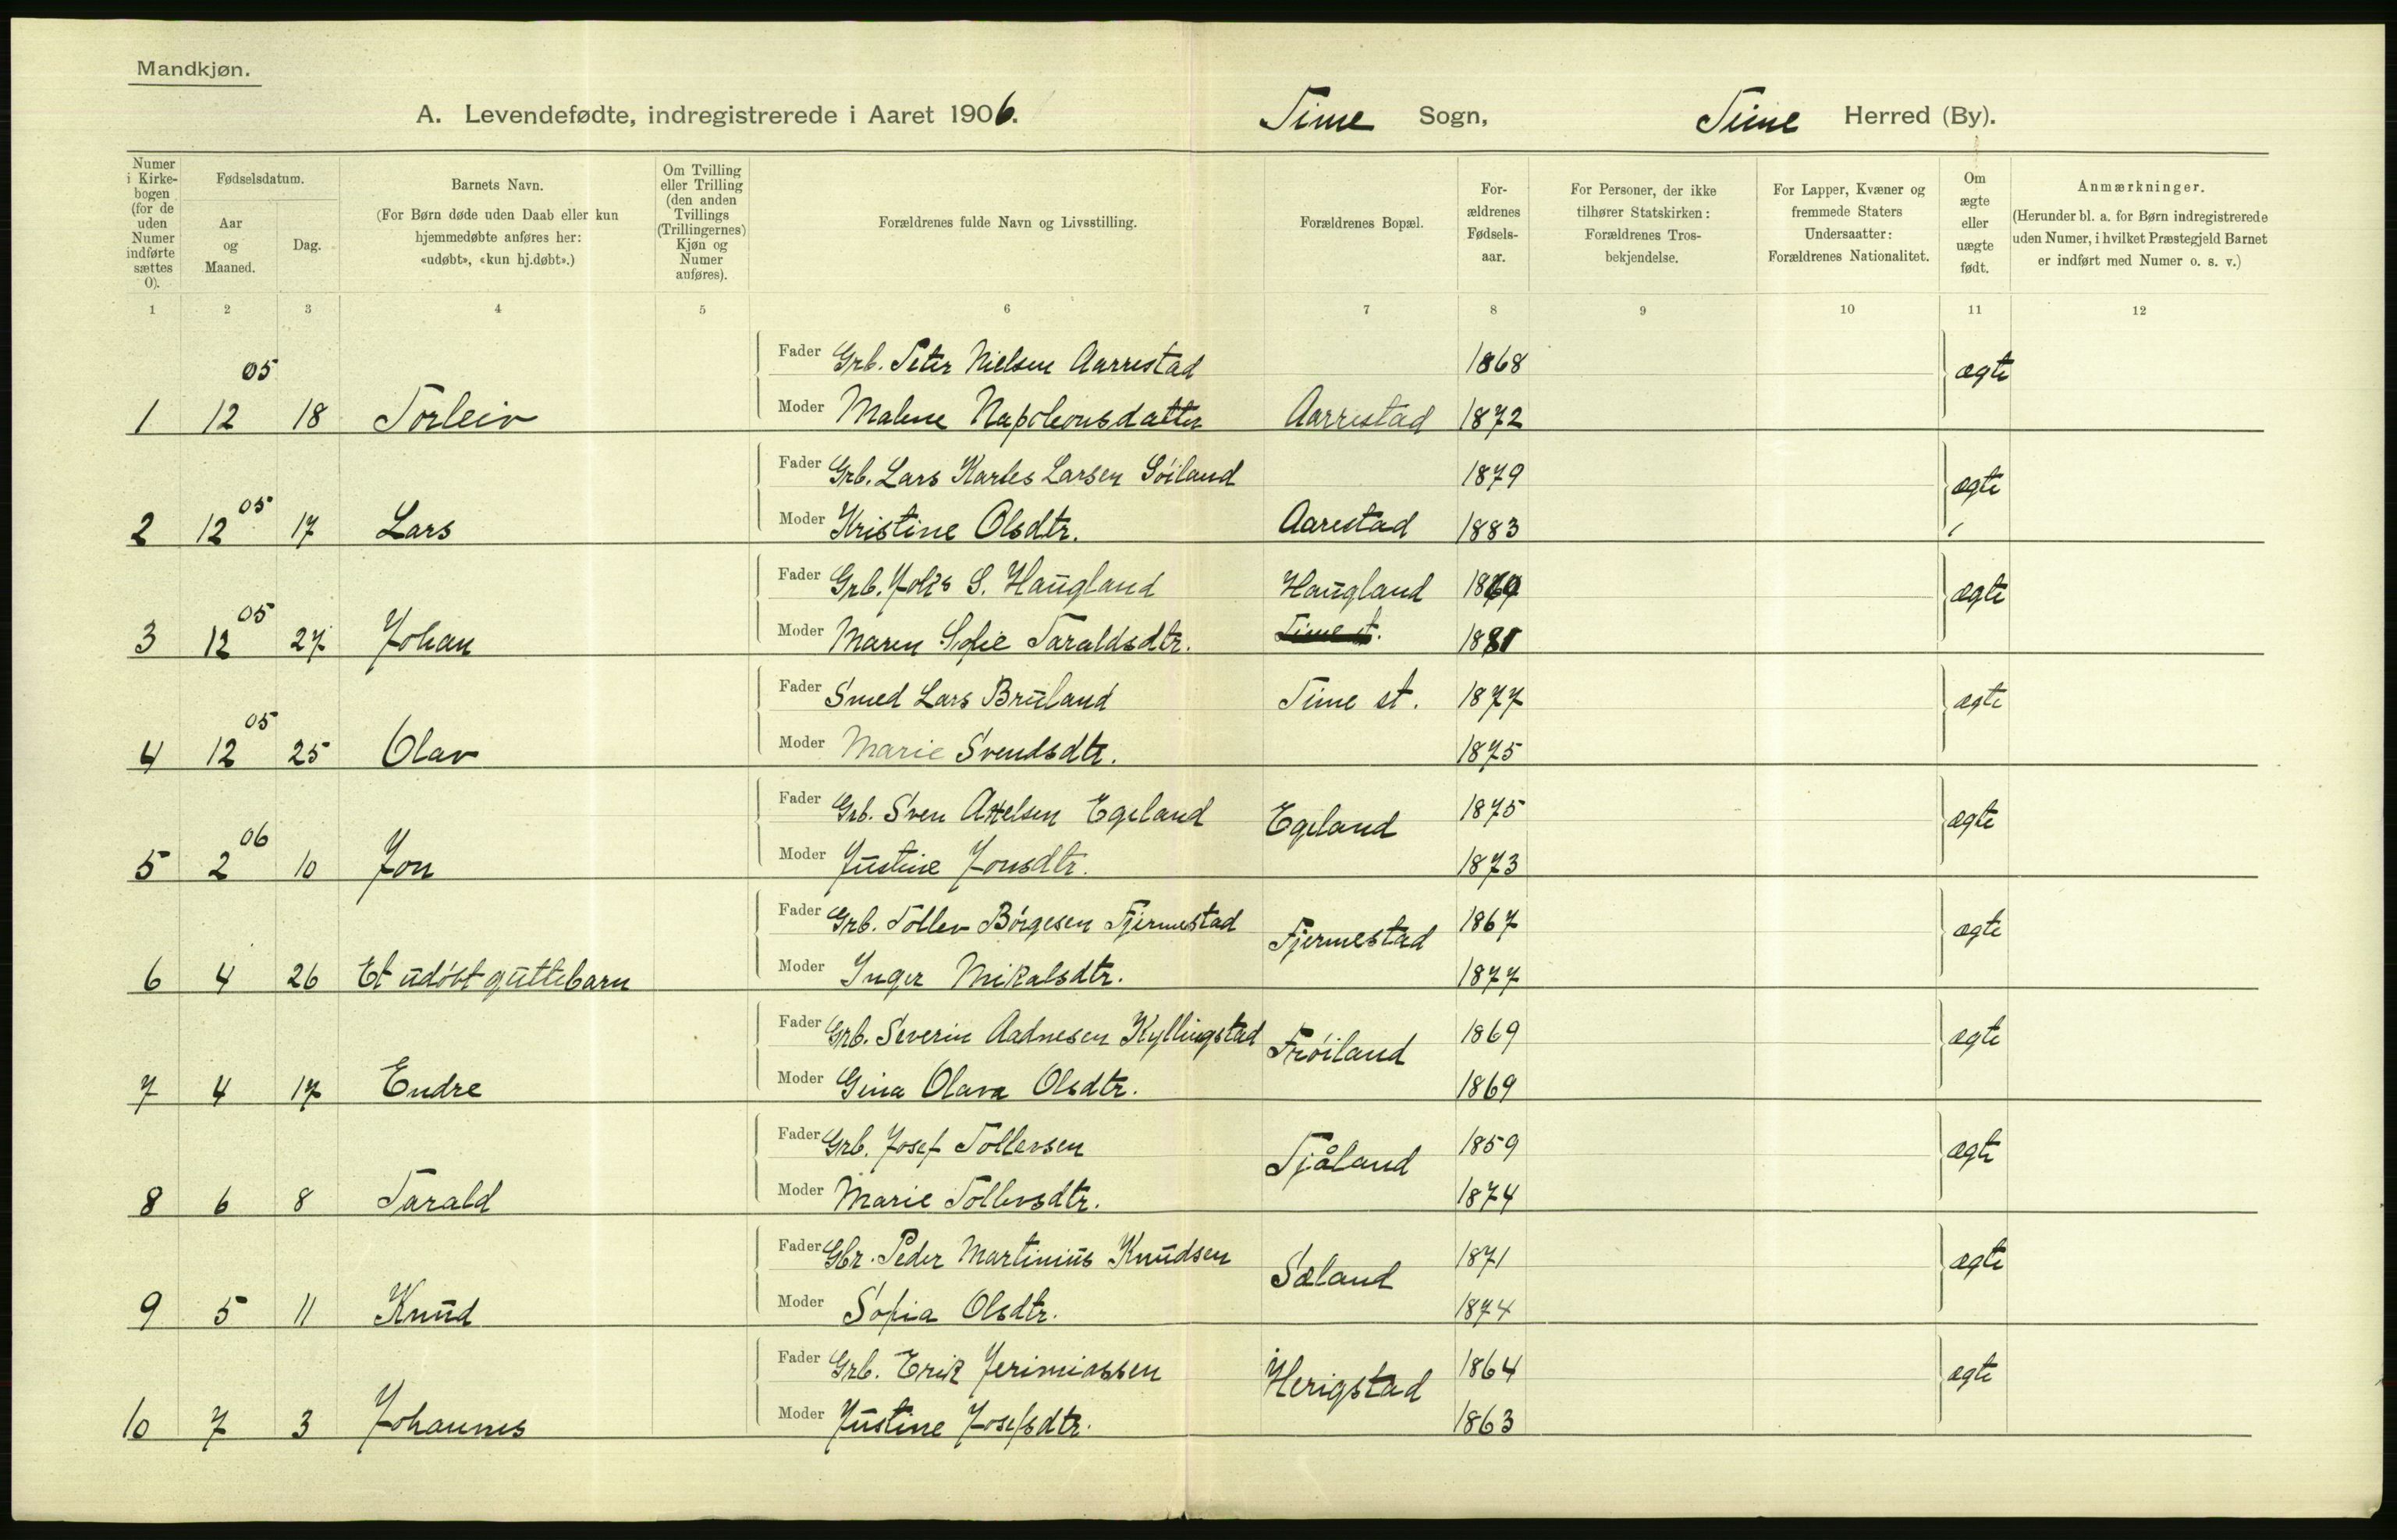 Mandkjøn.
A. Levendefødte, indregistrerede i Aaret 1906. Time Sogn, Time Herred (By).
Numer i Kirkebogen (for de uden Numer indførte sættes 0).
Fødselsdatum.
Aar og Maaned.
Dag.
Barnets Navn.
(For Børn døde uden Daab eller kun hjemmedøbte anføres her: «udøbt», «kun hj.døbt».)
Om Tvilling eller Trilling (den anden Tvillings (Trillingernes) Kjøn og Numer anføres).
Forældrenes fulde Navn og Livsstilling.
Forældrenes Bopæl.
For-ældrenes Fødsels-aar.
For Personer, der ikke tilhører Statskirken: Forældrenes Tros-bekjendelse.
For Lapper, Kvæner og fremmede Staters Undersaatter: Forældrenes Nationalitet.
Om ægte eller uægte født.
Anmærkninger.
(Herunder bl. a. for Børn indregistrerede uden Numer, i hvilket Præstegjeld Barnet er indført med Numer o. s. v.)
1 2 3 4 5 6 7 8 9 10 11 12
Fader Grb. Peter Nielsen Aarrestad 1868 ægte
1 12 05 18 Torleiv Moder Malene Napoleonsdatter Aarrestad 1872
Fader Grb. Lars Karles Larsen Söiland 1879 ægte
2 12 05 17 Lars Moder Kristine Olsdtr. Aarestad 1883
Fader Grb. S. Haugland Haugland ægte
3 12 05 27 Johan Moder Maren Sofie Taraldsdtr. Time st.
Fader Smed Lars Bruland Time st. 1877 ægte
4 12 05 25 Olav Moder Marie Svendsdtr. 1875
Fader Grb. Sven Egeland Egeland 1875 ægte
5 2 06 10 Jon Moder Justine Jonsdtr. 1873
Fader Grb. Tollev Börgesen Fjermestad Fjermestad 1867 ægte
6 4 26 Et udöbt guttebarn Moder Inger Mikalsdtr. 1877
Fader Grb. Severin Aadnesen Kyllingstad Fröiland 1869 ægte
7 4 17 Endre Moder Gina Olava Olsdtr. 1869
Fader Grb. Josef Tollevsen Tjåland 1859 ægte
8 6 8 Tarald Moder Marie Tollevsdtr. 1874
Fader Gbr. Peder Martinius Knudsen Sæland 1871 ægte
9 5 11 Knud Moder Sofia Olsdtr. 1874
Fader Grb. Erik Jerimiassen Herigstad 1864 ægte
10 7 3 Johannes Moder Justine Josefsdtr. 1863